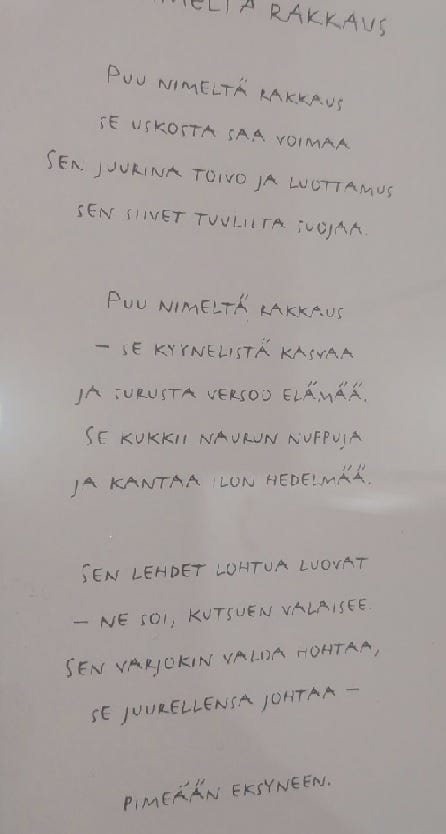 NIMELTÄ RAKKAUS
PUU NIMELTÄ RAKKAUS
SE USKOSTA SAA VOIMAA
SEN JUURINA TOIVO JA LUOTTAMUS
SEN SIIVET TUULILTA SUOJAA.
PUU NIMELTÄ RAKKAUS
– SE KYYNELISTÄ KASVAA
JA SURUSTA VERSOO ELÄMÄÄ.
SE KUKKII NAURUN NUPPUJA
JA KANTAA ILON HEDELMÄÄ.
SEN LEHDET LOHTUA LUOVAT
– NE SOI, KUTSUEN VALAISEE.
SEN VARJOKIN VALOA HOHTAA,
SE JUURELLENSA JOHTAA –
PIMEÄÄN EKSYNEEN.